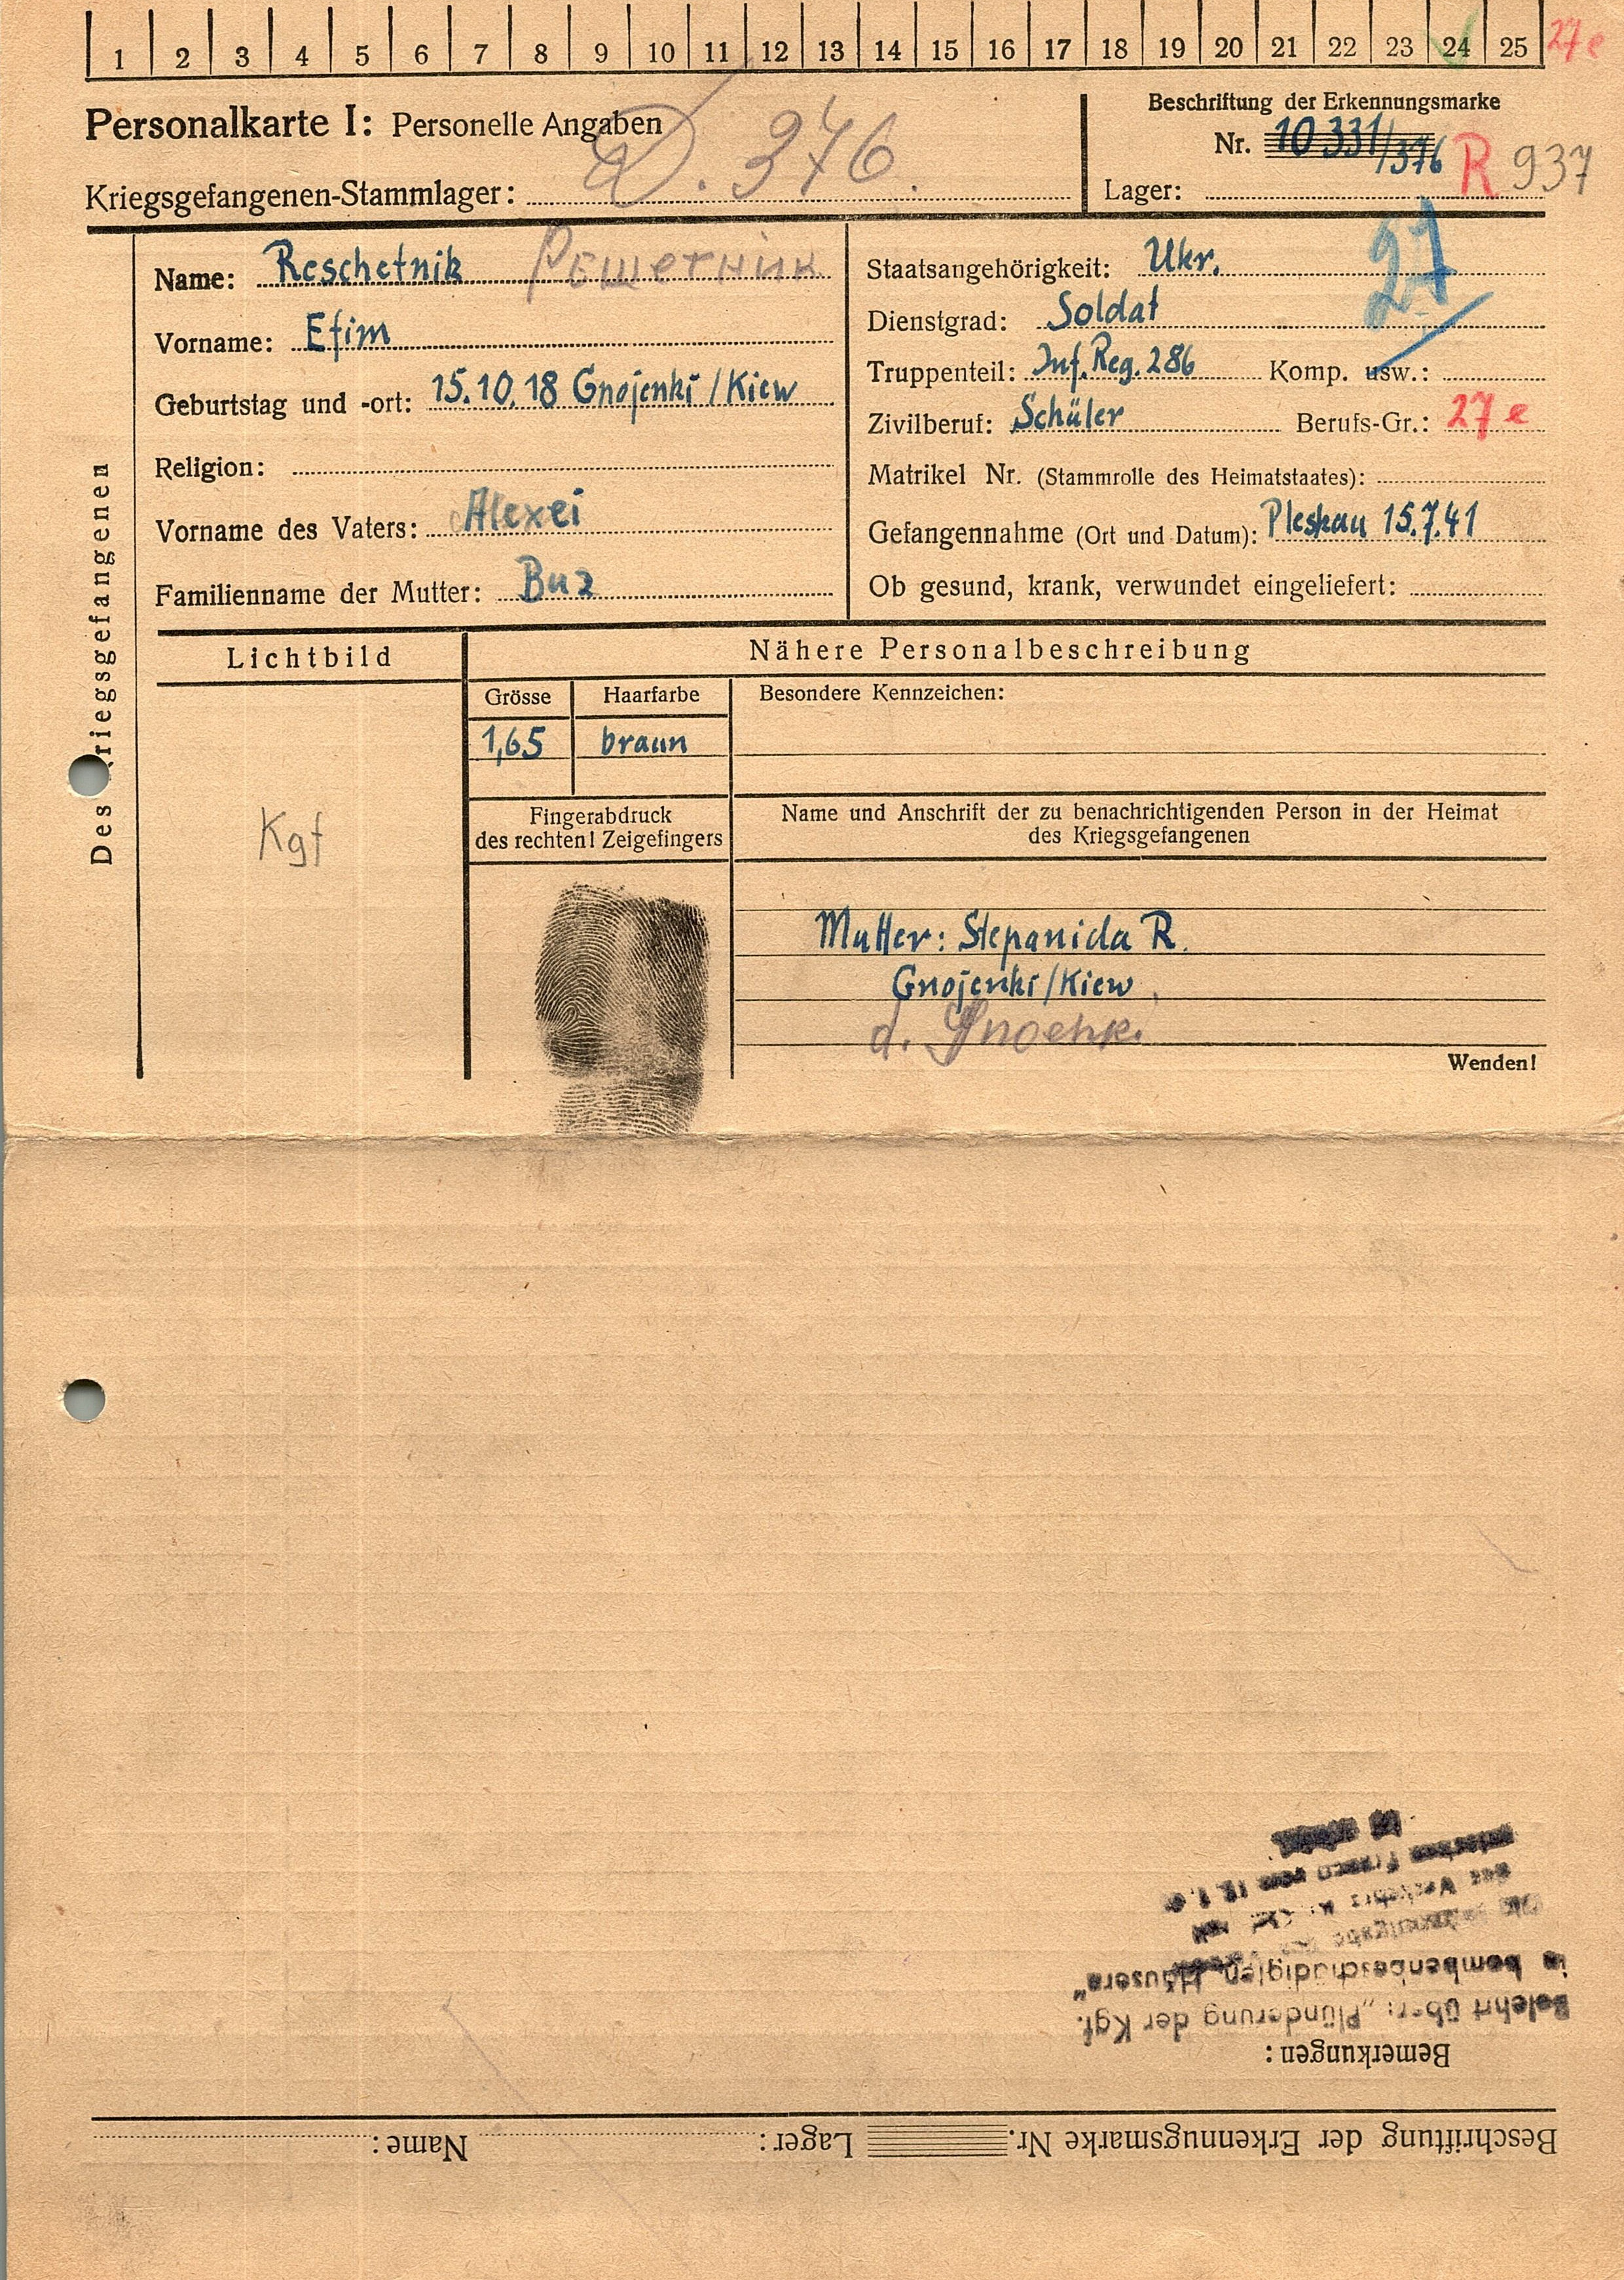 1 2 3 4 5 6 7 8 9 10 11 12 13 14 15 16 17 18 19 20 21 22 23 24 25 27 e
Personalkarte I: Personelle Angaben
Beschriftung der Erkennungsmarke
Nr. 10 331/376 R 937
Kriegsgefangenen-Stammlager: D. 376
Lager:
Des Kriegsgefangenen
Name: Reschetnik Решетник
Vorname: Efim
Geburtstag und -ort: 15.10.18 Gnojenki / Kiew
Religion:
Vorname des Vaters: Alexei
Familienname der Mutter: Buz
27
Staatsangehörigkeit: Ukr.
Dienstgrad: Soldat
Truppenteil: Inf. Reg. 286 Komp. usw.:
Zivilberuf: Schüler Berufs-Gr.: 27 e
Matrikel Nr. (Stammrolle des Heimatstaates):
Gefangennahme (Ort und Datum): Pleskau 15.7.41
Ob gesund, krank, verwundet eingeliefert:
Lichtbild
Kgf
Nähere Personalbeschreibung
Grösse Haarfarbe Besondere Kennzeichen:
1,65 braun
Fingerabdruck
des rechten! Zeigefingers
Name und Anschrift der zu benachrichtigenden Person in der Heimat
des Kriegsgefangenen
Mutter: Stepanida R.
Gnojenki/Kiew
d. Gnoenki
Wenden!
Beschriftung der Erkennugsmarke Nr. Lager: Name:
Bemerkungen:
Belehrt über: „Plünderung der Kgf.
in bombenbeschädigten Häusern"